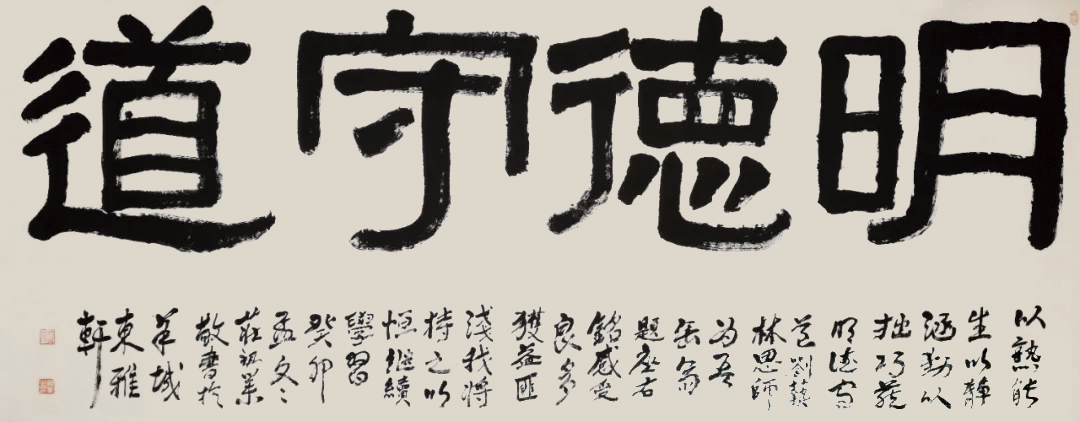 明德守道
以熟能
生以静
涵動以
拙巧藏
明德守
道劉藝
林恩師
为吾
翁
題座右
銘感受
良多
獲益匪
淺我将
持之以
恒继續
學習
癸卯
孟冬
莊初業
敬書於
羊城
東雅
軒